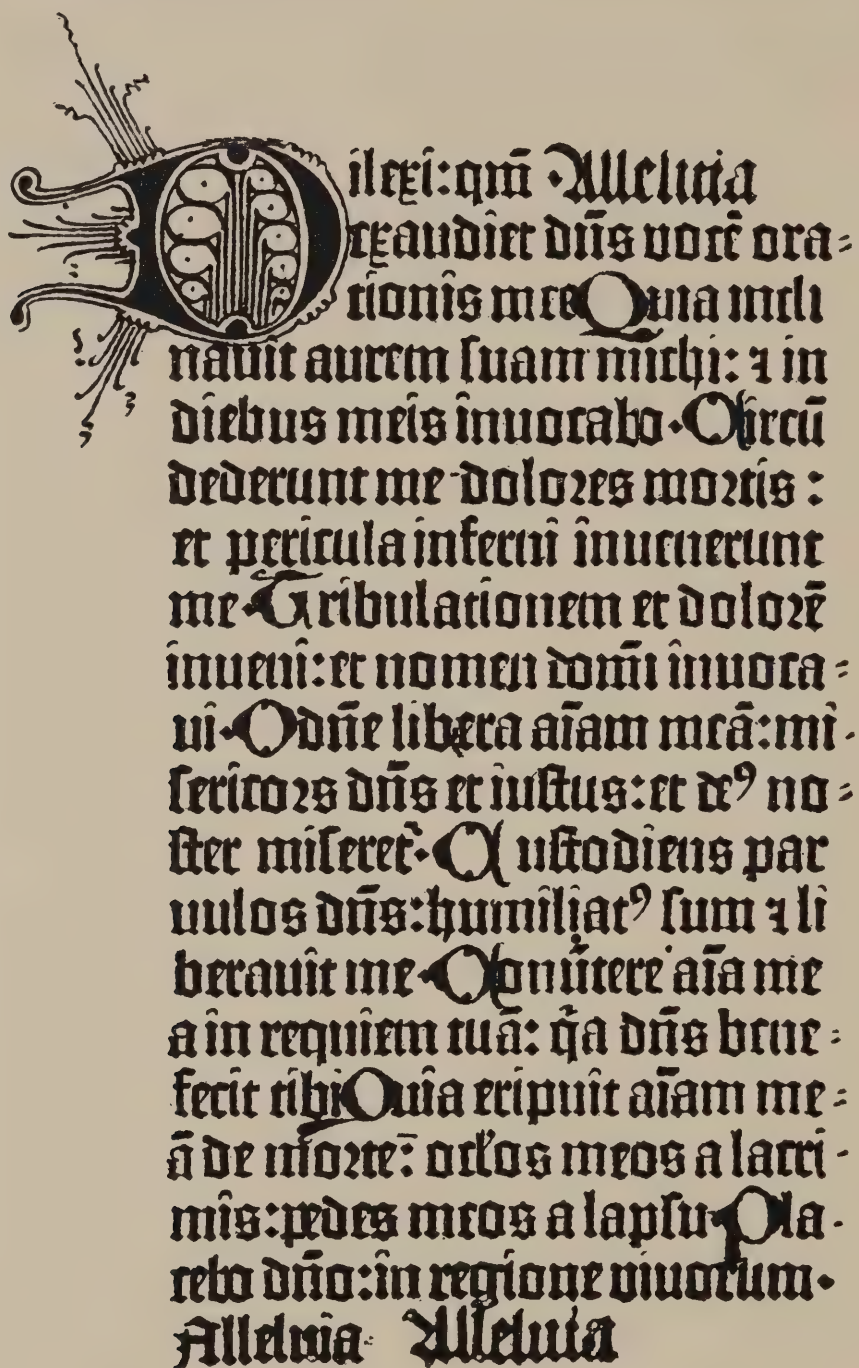 Dilexi: qm̄ · Alleluia
exaudiet dn̄s vocē ora=
tionis mee Quia incli
navit aurem ſuam michi: ⁊ in
diebus meis invocabo · Circū
dederunt me dolores mortis :
et pericula inferni invenerunt
me · Tribulationem et dolorē
inueni: et nomen domı̄ inuoca=
ui · O dn̄e libera aīam meā: mi-
ſericors dn̄s et iuſtus: et deꝰ no=
ſter miſeret᷑ · Cuſtodiens par
uulos dn̄s: humiliatꝰ ſum ⁊ li
beravit me · Conūtere aīa me
a in requiem tuā: q̄a dn̄s bene=
fecit tibi Quia eripuit aīam me=
ā de morte: oclōs meos a lacri-
mis: pedes meos a lapſu · Pla-
cebo dn̄o: in regione viuorum ·
Alleluia · Alleluia